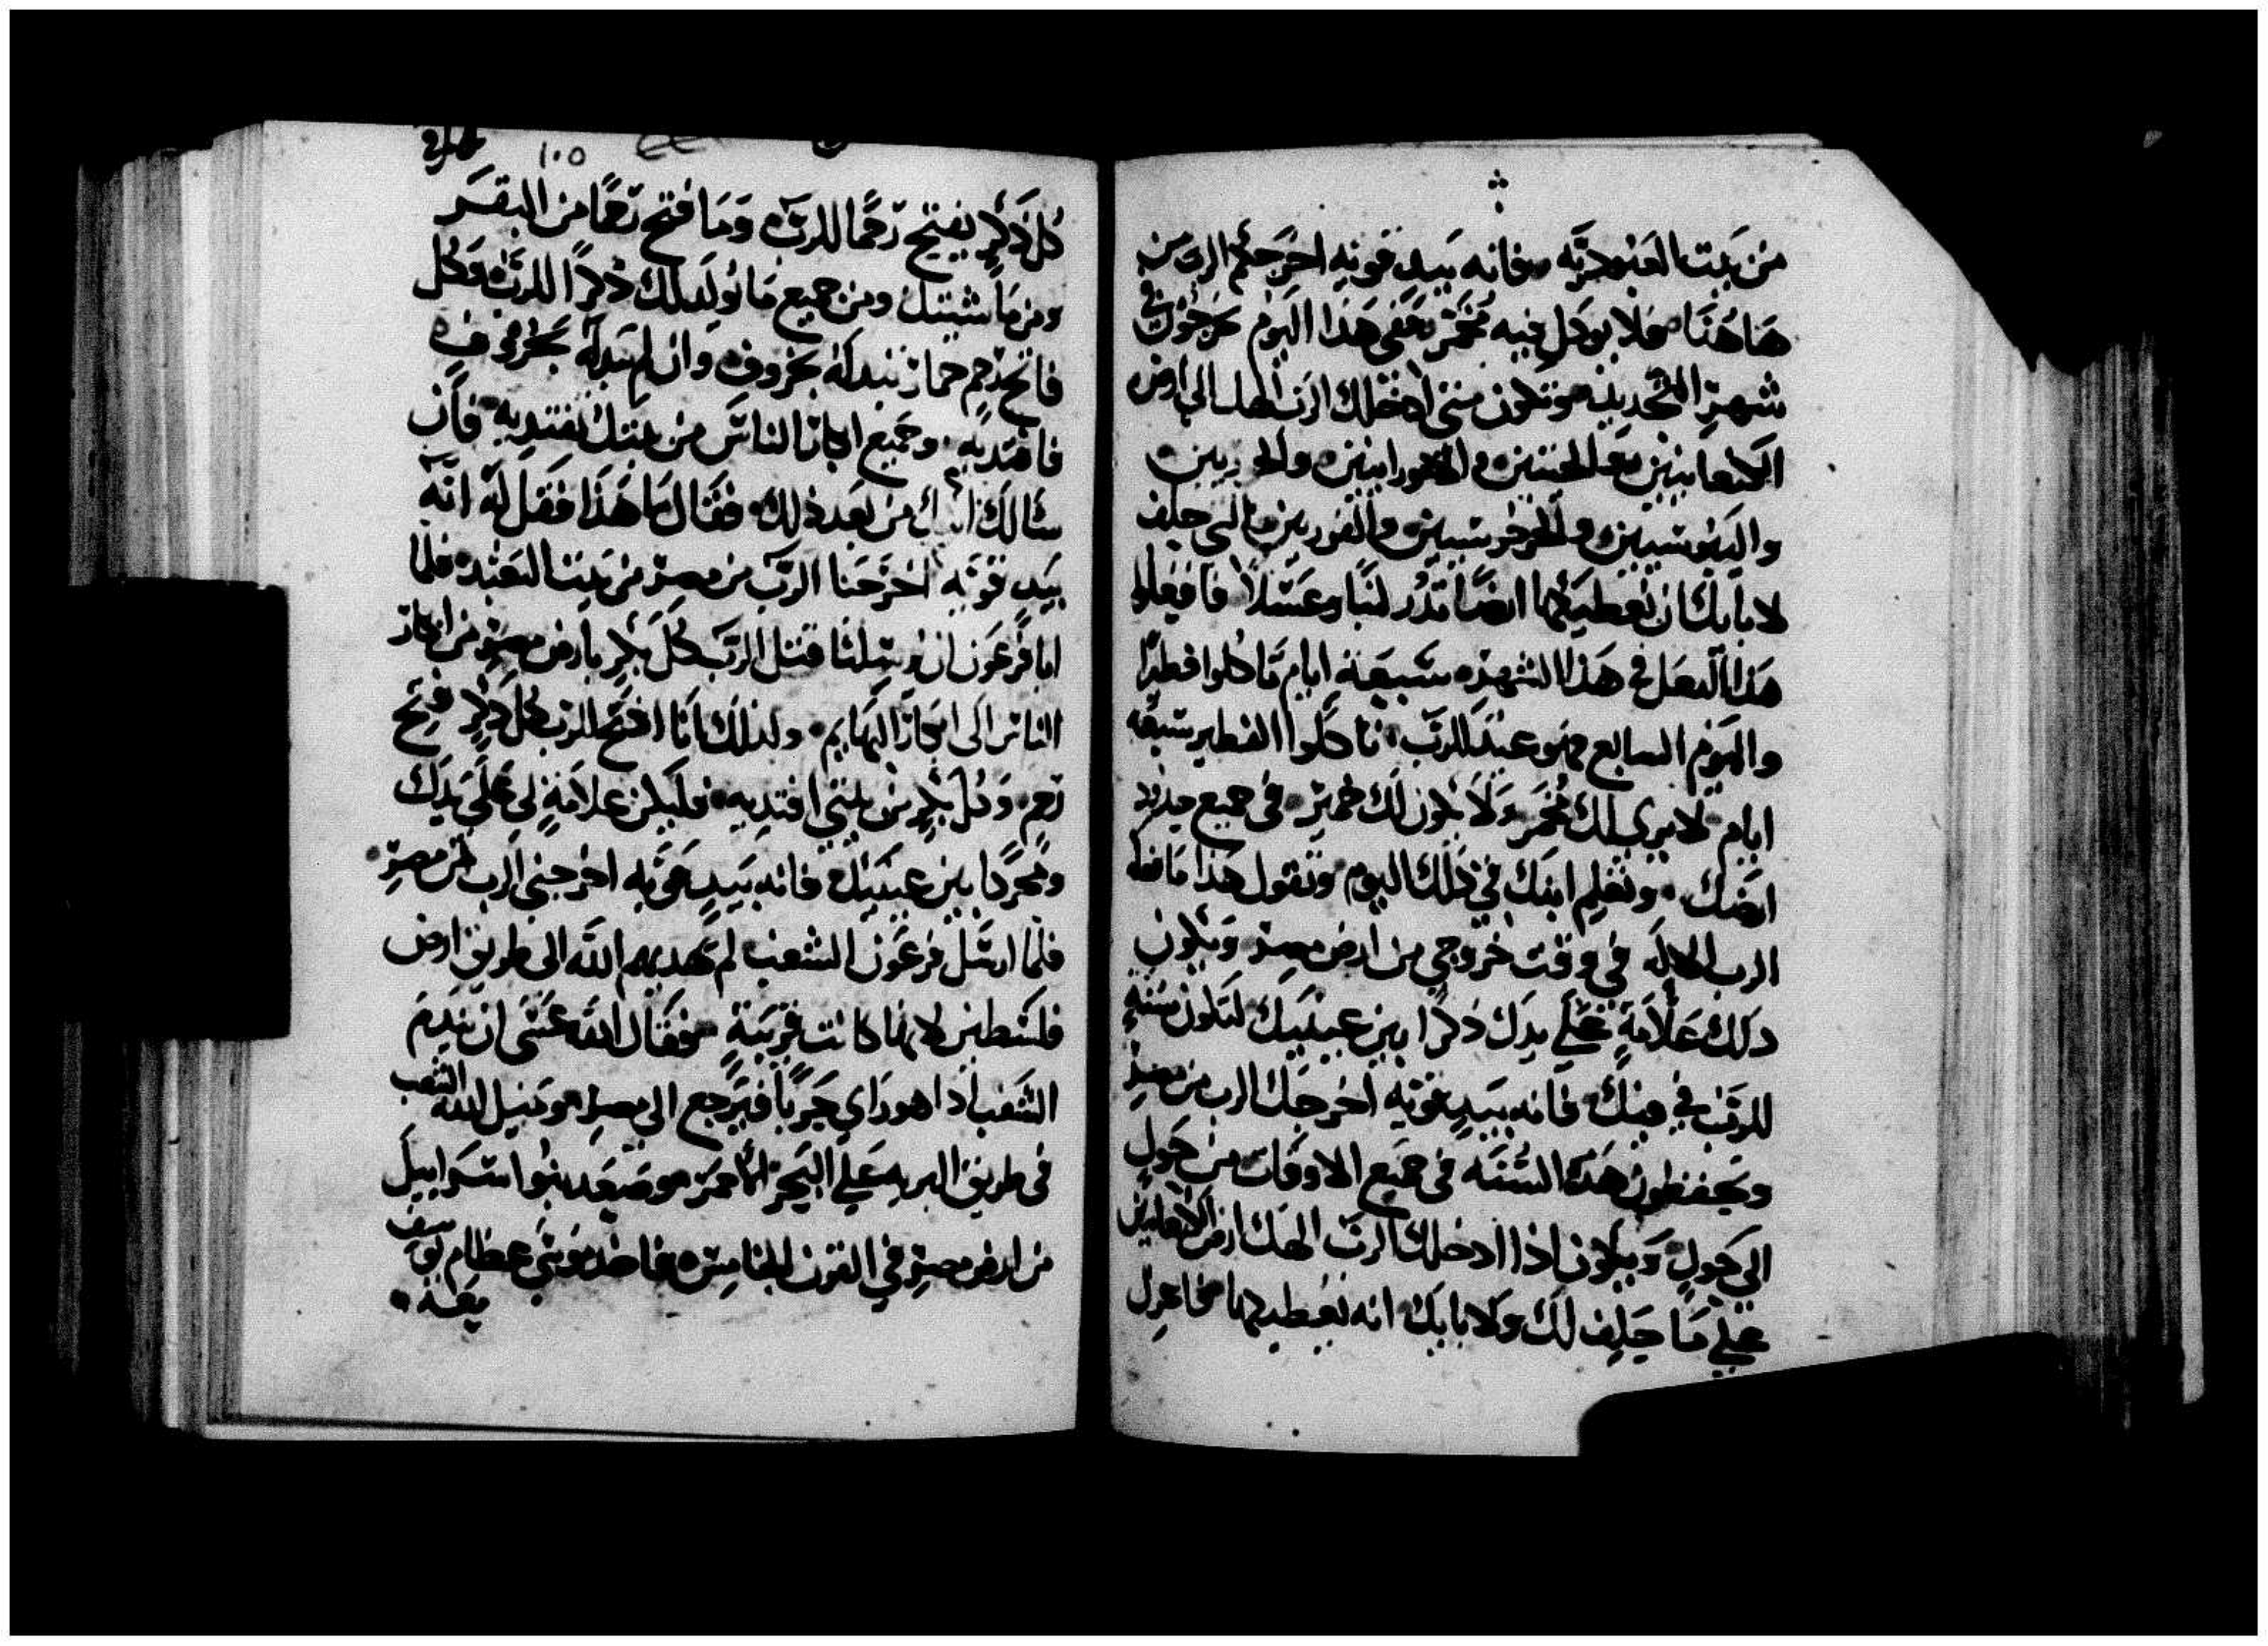 من بيت العبودية فانه بيد قويه اخرجكم الرب من
هاهنا فلا يوكل فيه مختمر ففي هذا اليوم خرجون في
شهر الجديد ويكون متى ادخلك الرب الهك الى ارض
الكنعانيين والحيتين والامورانيين والحويين
واليبوسيين والجرجوسيين والفوريين التي حلف
لابايك ان يعطيكها ارضا تدر لبنا وعسلا فافعلوا
هذا العمل في هذا الشهر سبعة ايام تاكلوا فطيرا
واليوم السابع فهو عيد للرب تاكلوا الفطير سبعه
ايام لا يرى لك مختمر ولا يكون لك خمير في جميع حدود
ارضك وتعلم ابنك في ذلك اليوم وتقول هذا ما فعله
الرب الاله في وقت خروجي من ارض مصر ويكون
ذلك علامة على يدك ذكرا بين عينيك لتكون سنه
للرب في فيك فانه بيد قويه اخرجك الرب من مصر
ويحفظون هذه السنه في جميع الاوقات من حول
الى حول ويكون اذا ادخلك الرب الهك ارض الكنعانيين
على ما حلف لك ولابايك انه يعطيكها فاعزل
١٠٥
كل ذكر يفتح رحما للرب وما فتح رحما من البقر
ومن ماشيتك ومن جميع ما يولد لك ذكرا للرب وكل
فاتح رحم حمار تبدله بخروف وان لم تبدله بخروف
فافتديه وجميع ابكار الناس من بنيك تفتديه فان
سالك ابنك من بعد ذلك فقال ما هذا فقل له انه
بيد قويه اخرجنا الرب من مصر من بيت التعبد فلما
ابا فرعون ان يرسلنا قتل الرب كل بكر بارض مصر من ابكار
الناس الى ابكار البهايم ولذلك انا افتح للرب كل ذكر فتح
رحم وكل بكر من بني افتديه فليكن علامة لي على يدك
ومحركا بين عينيك فانه بيد قويه اخرجني الرب من مصر
فلما ارسل فرعون الشعب لم يهديهم الله الى طريق ارض
فلسطين لانها كانت قريبة فقال الله عسى ان يندم
الشعب اذا هو راى حربا فيرجع الى مصر فميل الله الشعب
في طريق البريه على البحر الاحمر فصعد بنوا اسراييل
من ارض مصر في القرن الخامس فاخذ موسى عظام يوسف
معه